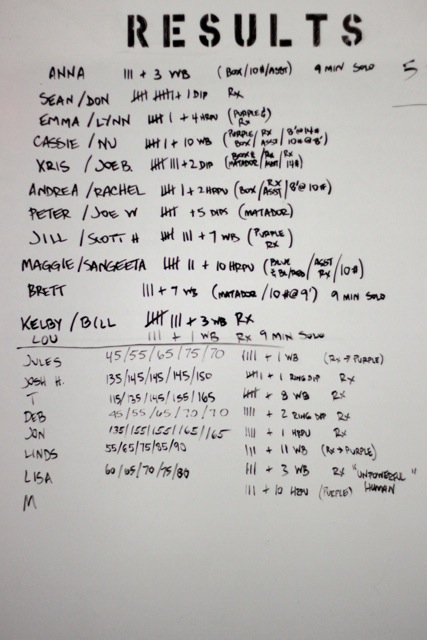 RESULTS
ANNA III + 3 WB (BOX/10#/ASST) 9 MIN SOLO 5
SEAN/DON + 1 DIP Rx
EMMA/LYNN I + 4 HRPU (PURPLE/ Rx)
CASSIE/NU I + 10 WB (PURPLE/BOX / Rx/ASST / 8'@14#/10#@8')
KRIS/JOE B. III + 2 DIP (MATADOR/ Rx / Rx/14#)
ANDREA/RACHEL I + 2 HRPU (BOX/ Rx/ASST /8'@10#)
PETER/JOE W + 5 DIPS (MATADOR)
JILL/SCOTT H III + 7 WB (PURPLE Rx)
MAGGIE/SANGEETA II + 10 HRPU (BLUE / ASST/Rx /10#)
BRETT III + 7 WB (MATADOR/10#@9') 9 MIN SOLO
KELBY/BILL III + 3 WB Rx
LOU III + 1 WB Rx 9 MIN SOLO
JULES 45/55/65/75/70 IIII + 1 WB (Rx→PURPLE)
JOSH H. 135/145/145/145/150 I + 1 RING DIP Rx
T 115/135/145/155/165 + 8 WB Rx
DEB 45/55/65/70/70 IIII + 2 RING DIP Rx
JON 135/155/155/165/165 IIII + 1 HRPU Rx
LINDS 55/65/75/85/90 III + 11 WB (Rx→PURPLE)
LISA 60/65/70/75/80 IIII + 3 WB Rx "UNPOWERFUL HUMAN"
M III + 10 HRPU (PURPLE)